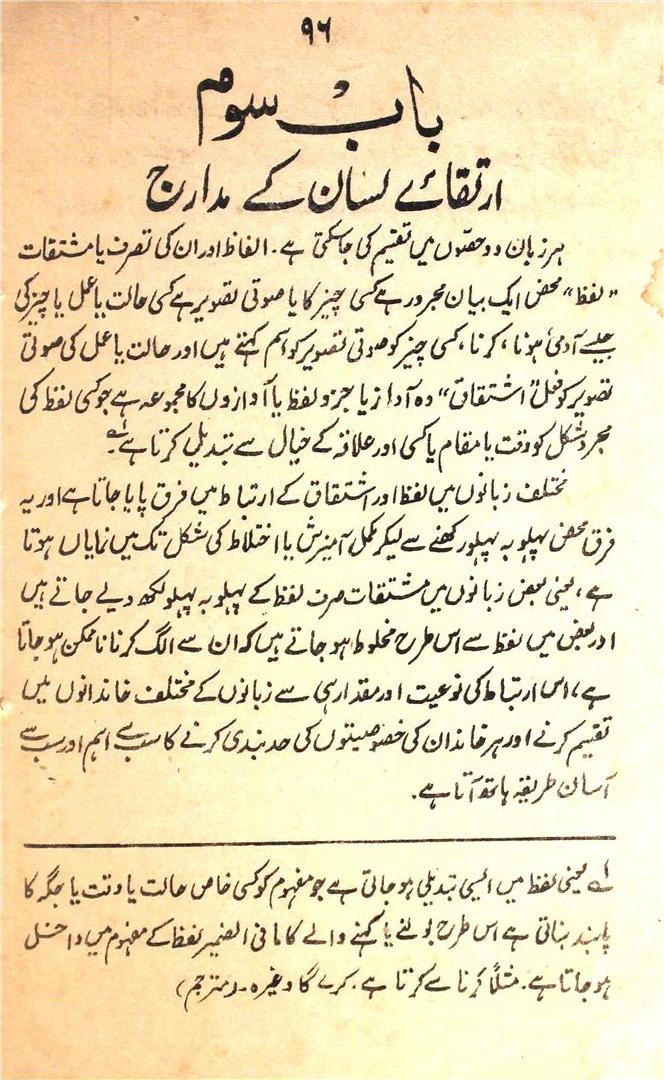 ۹۶
باب سوم
ارتقائے لسان کے مدارج
ہر زبان دو حصّوں میں تقسیم کی جاسکتی ہے۔ الفاظ اور ان کی تصرف یا مشتقات
"لفظ" محض ایک بیان مجرور ہے کسی چیز کا یا صوتی تصویر ہے کسی حالت یا عمل یا چیز کی
جیسے آدمی، ہونا، کرنا، کسی چیز کو صوتی تصویر کو اسم کہتے ہیں اور حالت یا عمل کی صوتی
تصویر کو فعل، "اشتقاق" وہ آواز یا جزو لفظ یا آوازوں کا مجموعہ ہے جو کسی لفظ کی
مجرد شکل کو وقت یا مقام یا کسی اور علاقہ کے خیال سے تبدیل کرتا ہے۔ لہ
مختلف زبانوں میں لفظ اور اشتقاق کے ارتباط میں فرق پایا جاتا ہے اور یہ
فرق محض پہلو بہ پہلو رکھنے سے لیکر مکمل آمیزش یا اختلاط کی شکل تک میں نمایاں ہوتا
ہے، یعنی بعض زبانوں میں مشتقات صرف لفظ کے پہلو بہ پہلو لکھ دیے جاتے ہیں
اور بعض میں لفظ سے اس طرح مخلوط ہو جاتے ہیں کہ ان سے الگ کرنا ناممکن ہو جاتا
ہے، اس ارتباط کی نوعیت اور مقدار ہی سے زبانوں کے مختلف خاندانوں میں
تقسیم کرنے اور ہر خاندان کی خصوصیتوں کی حد بندی کرنے کا سب سے اہم اور سب سے
آسان طریقہ ہاتھ آتا ہے۔
لہ یعنی لفظ میں ایسی تبدیلی ہو جاتی ہے جو مفہوم کو کسی خاص حالت یا وقت یا جگہ کا
پابند بناتی ہے اس طرح بولنے یا کہنے والے کا مافی الضمیر لفظ کے مفہوم میں داخل
ہو جاتا ہے۔ مثلاً کرنا سے کرتا ہے۔ کرے گا وغیرہ۔ (مترجم)